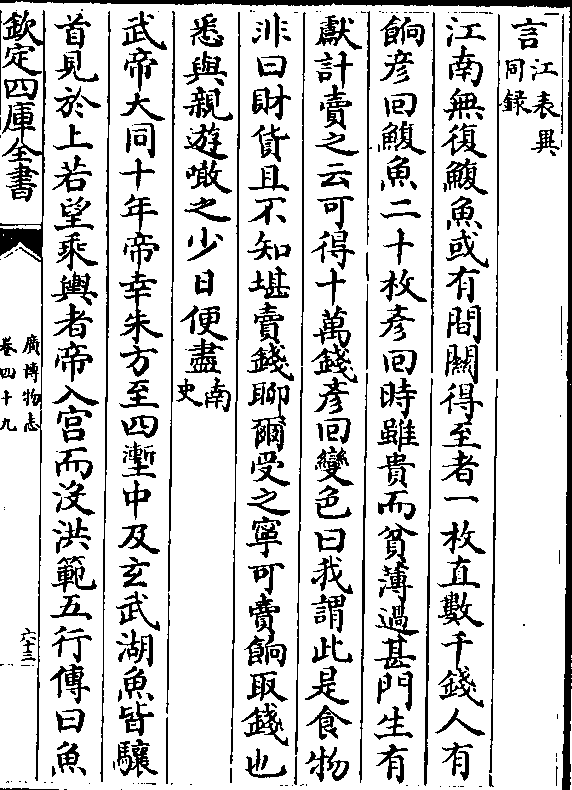 言江表異
同録
江南無復鰒魚或有間關得至者一枚直數千錢人有
餉彦回鰒魚二十枚彦回時雖貴而貧薄過甚門生有
獻計賣之云可得十萬錢彦回變色曰我謂此是食物
非曰財貨且不知堪賣錢聊爾受之寧可賣餉取錢也
悉與親遊噉之少日便盡南
史
武帝大同十年帝幸朱方至四壍中及玄武湖魚皆驤
首見於上若望乘輿者帝入宫而没洪範五行傳曰魚
欽定四庫全書
廣博物志
卷四十九
六十三